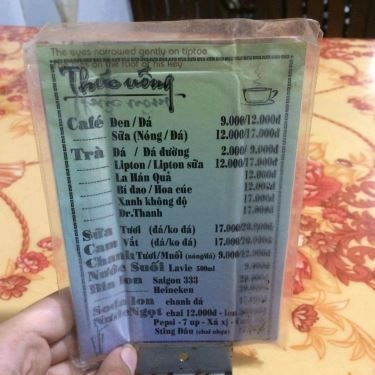 The eyes narrowed gently on tiptoe
on the root of his key
Thức uống
Café Đen / Đá 9.000/12.000đ
Sữa (Nóng / Đá) 12.000/17.000đ
Trà Đá / Đá đường 2.000/ 9.000đ
Lipton / Lipton sữa 12.000/17.000đ
La Hán Quả 12.000đ
Bí đao / Hoa cúc 12.000đ
Xanh không độ 17.000đ
Dr.Thanh 17.000đ
Sữa Tươi (đá/ko đá) 17.000/20.000đ
Cam Vắt (đá/ko đá) 17.000/20.000đ
Chanh Tươi/Muối (nóng/đá) 9.000/12.000đ
Nước Suối Lavie 500ml 9.000đ
Bia lon Saigon 333
Heineken
Soda lon chanh đá
Nước Ngọt chai 12.000đ - lon
Pepsi - 7 up - Xá xị -
Sting Dâu (chai nhựa)